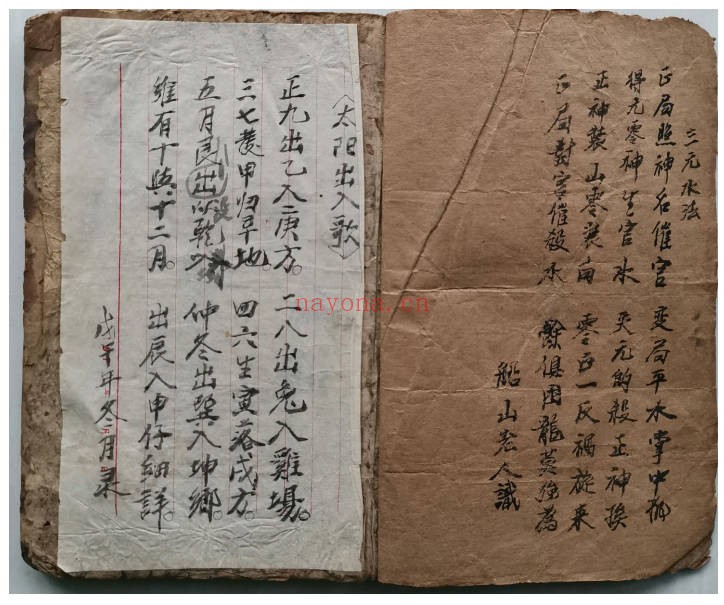 三元水法
正局照神名催官 变局平水掌中
得元零神生官水 失元的殺正神挨
正神裝山零裝向 零正一反禍旋来
正局對宮催殺水 餘俱困龍莫強為
船山老人識
〈太阳出入歌〉
正九出乙入庚方。二八出兔入雞場。
三七發甲归辛地 四六生寅落戌方。
五月艮出以乾 仲冬出巽入坤鄉。
維有十與十二月。出辰入申仔細詳。
戊午年冬月录
nayona.cn